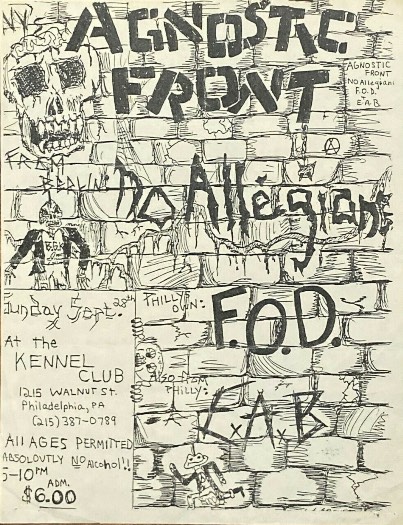 NY
AGNOSTIC
FRONT
AGNOSTIC
FRONT
No Allegiani
F.O.D.
E·A·B
No Allegiani
Sunday Sept. 28th
PHILLY'S
OWN:
F.O.D.
At the
KENNEL
CLUB
1215 WALNUT ST.
Philadelphia, PA
(215) 387-0789
Also from
PHILLY:
E.A.B
All AGES PERMITTED
ABSOLOUTLY NO Alcohol!!
5-10PM
ADM.
$6.00